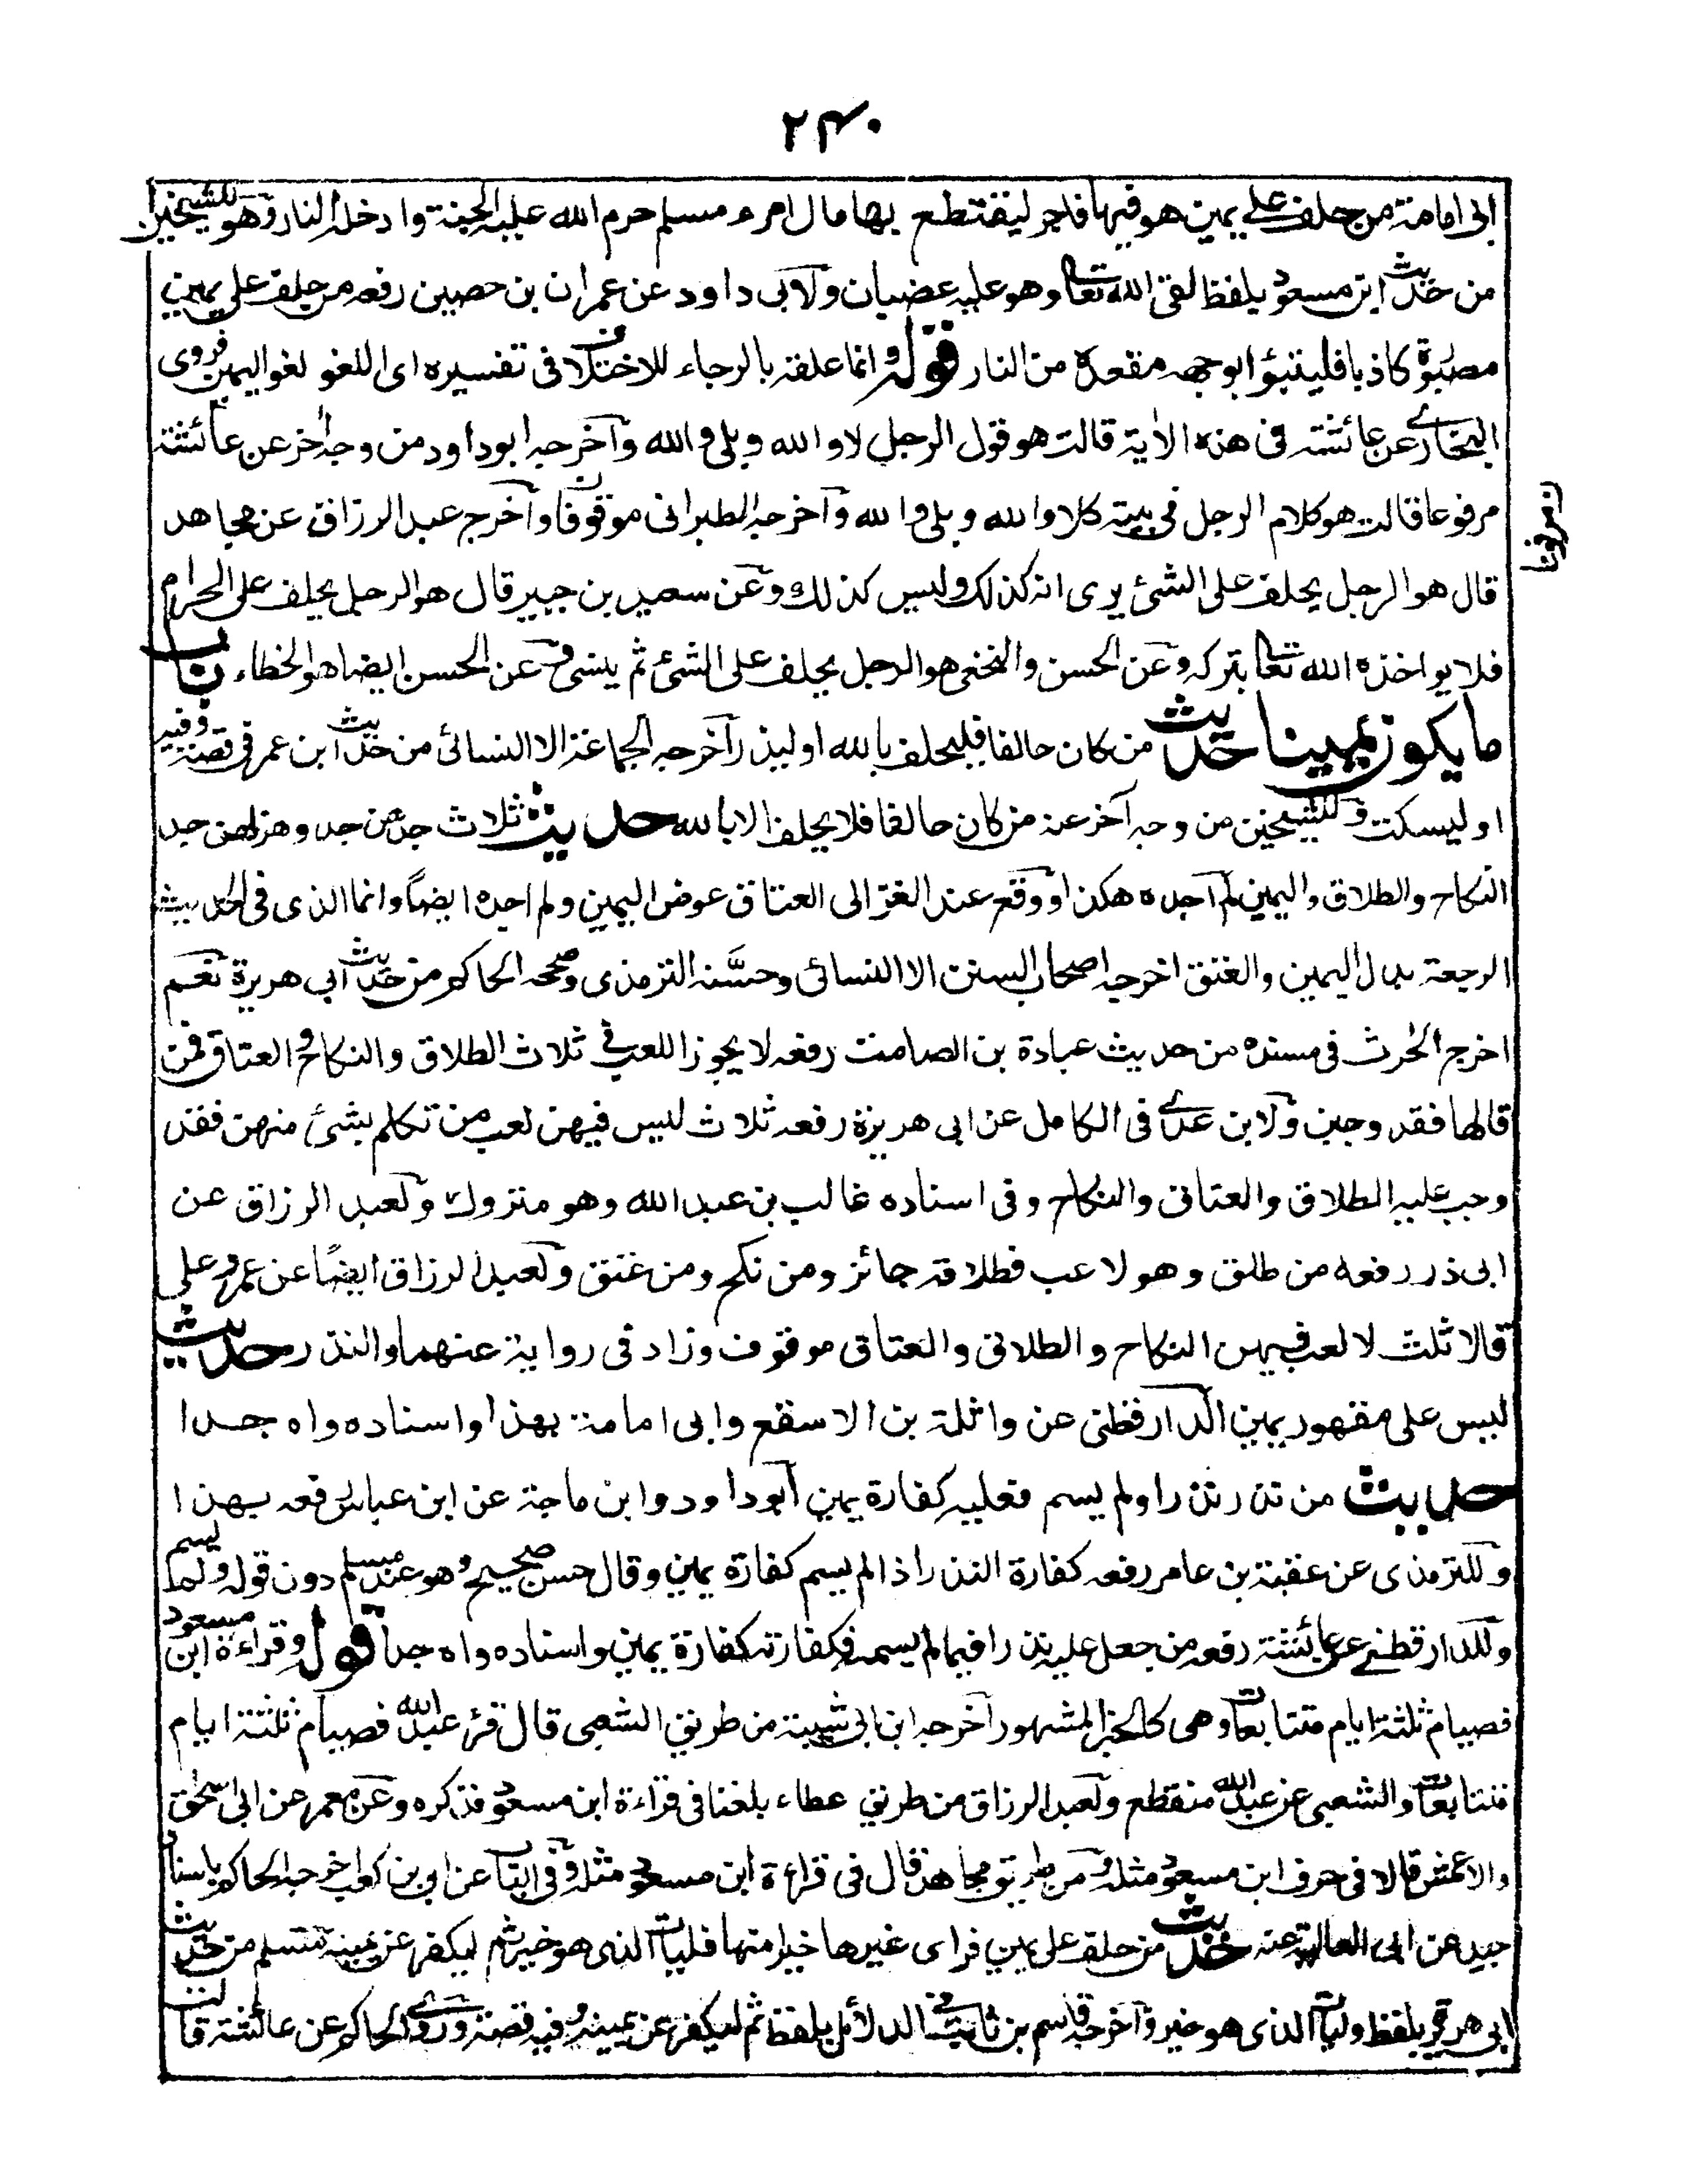 ۲۴۰
ابى امامة من حلف على يمين هو فيها فاجر ليقتطع بها مال امرء مسلم حرم الله عليه الجنة وادخله النار وهو للشيخين
من حديث ابن مسعود بلفظ لقى الله تعالى وهو عليه غضبان ولابى داود عن عمران بن حصين رفعه من حلف على يمين
مصبوة كاذبا فليتبوٴا بوجهه مقعده من النار قوله وانما علقه بالرجاء للاختلاف فى تفسيره اى اللغو لغو اليمين فروى
البخارى عن عائشة فى هذه الاية قالت هو قول الرجل لا والله وبلى والله وآخرجه ابوداود من وجه اخر عن عائشة
مرفوعا قالت هو كلام الرجل فى بيته كلا والله وبلى والله وآخرجه الطبرانى موقوفا وآخرج عبد الرزاق عن مجاهد
قال هو الرجل يحلف على الشئ يرى انه كذلك وليس كذلك وعن سعيد بن جبير قال هو الرجل يحلف على الحرام
فلا يواخذه الله تعالى بتركه وعن الحسن والنخعى هو الرجل يحلف على الشئ ثم ينسى وعن الحسن ايضا هو الخطاء باب
ما يكون يمينا حديث من كان حالفا فليحلف بالله او ليذر آخرجه الجماعة الا النسائى من حديث ابن عمر فى قصة وفيه
او ليسكت وللشيخين من وجه آخر عنه من كان حالفا فلا يحلف الا بالله حديث ثلاث جدهن جد وهزلهن جد
النكاح والطلاق واليمين لم آجده هكذا ووقع عند الغزالى العتاق عوض اليمين ولم اجده ايضاً وانما الذى فى الحديث
الرجعة بدل اليمين والعتق اخرجه اصحاب السنن الا النسائى وحسَّنه الترمذى وصححه الحاكم من حديث ابى هريرة نعم
اخرج الحٰرث فى مسنده من حديث عبادة بن الصامت رفعه لا يجوز اللعب فى ثلاث الطلاق والنكاح والعتاق فمن
قالها فقد وجبن ولابن عدى فى الكامل عن ابى هريرة رفعه ثلاث ليس فيهن لعب من تكلم بشئ منهن فقد
وجب عليه الطلاق والعتاق والنكاح وفى اسناده غالب بن عبد الله وهو متروك ولعبد الرزاق عن
ابى ذر رفعه من طلق وهو لاعب فطلاقه جائز ومن نكح ومن عتق ولعبد الرزاق ايضًا عن عمر وعلى
قالا ثلث لا لعب فيهن النكاح والطلاق والعتاق موقوف وزاد فى رواية عنهما والنذر حديث
ليس على مقهور يمين الدارقطنى عن واثلة بن الاسقع وابى امامة بهذا واسناده واه جدا
حديث من نذر نذرا ولم يسم فعليه كفارة يمين آبوداود وابن ماجة عن ابن عباس رفعه بهذا
وللترمذى عن عقبة بن عامر رفعه كفارة النذر اذا لم يسم كفارة يمين وقال حسن صحيح وهو عند مسلم دون قوله ولما يسم
وللدارقطنى عن عائشة رفعه من جعل عليه نذرا فيما لم يسمه فكفارته كفارة يمين واسناده واه جدا قوله وقراءة ابن مسعود
فصيام ثلثة ايام متتابعات وهى كالخبر المشهور آخرجه ابن ابى شيبة من طريق الشعبى قال قرء عبد الله فصيام ثلثة ايام
متتابعات والشعبى عن عبد الله منقطع ولعبد الرزاق من طريق عطاء بلغنا فى قراءة ابن مسعود فذكره وعن معمر عن ابى اسحٰق
والاعمش قالا فى حرف ابن مسعود مثله ومن طريق مجاهد قال فى قراءة ابن مسعود مثله وفى الباب عن ابى بن كعب اخرجه الحاكم باسناد
جيد عن ابى العالية عنه حديث من حلف على يمين فراى غيرها خيرا منها فليات الذى هو خير ثم ليكفر عن يمينه مسلم من حديث
ابى هريرة بلفظ وليات الذى هو خير وآخرجه قاسم بن ثابت فى الدلائل بلفظ ثم ليكفر عن يمينه وفيه قصة وروى الحاكم عن عائشة قالت